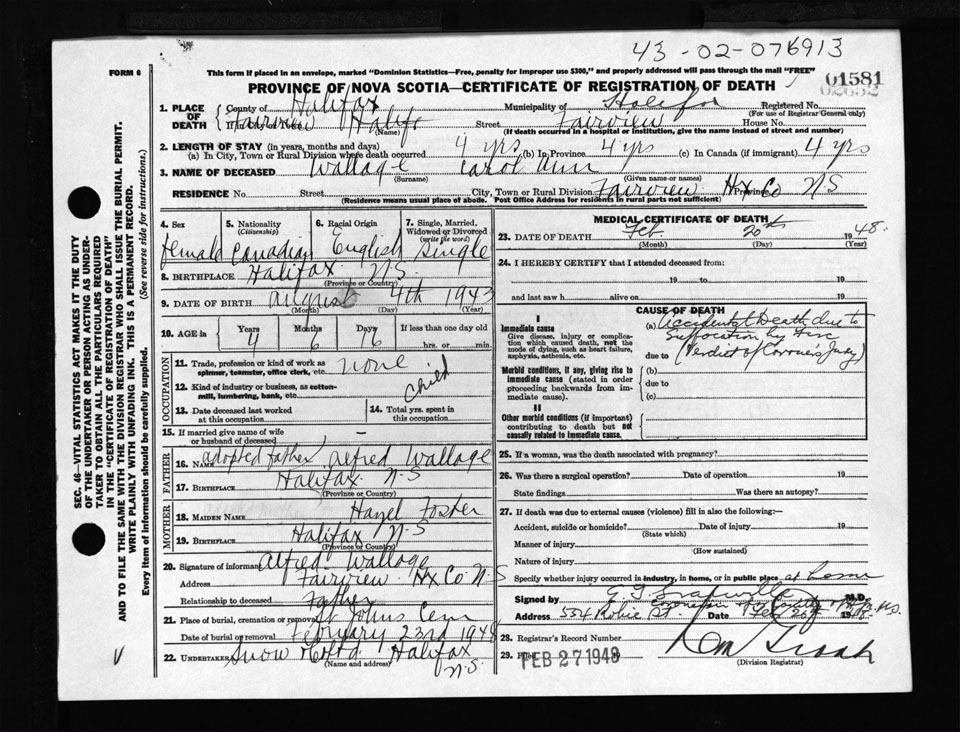 43-02-076913
FORM 6
This form if placed in an envelope, marked "Dominion Statistics—Free, penalty for improper use $300," and properly addressed will pass through the mail "FREE"
PROVINCE OF NOVA SCOTIA—CERTIFICATE OF REGISTRATION OF DEATH
01581
02652
1. PLACE OF DEATH County of Halifax Municipality of Halifax Registered No.
(For use of Registrar General only)
If in City or Town Fairview Halifx Street Fairview House No.
(Name) (If death occurred in a hospital or institution, give the name instead of street and number)
2. LENGTH OF STAY (in years, months and days)
(a) In City, Town or Rural Division where death occurred 4 yrs (b) In Province 4 yrs (c) In Canada (if immigrant) 4 yrs
3. NAME OF DECEASED Wallage Carol Ann
(Surname) (Given name or names)
RESIDENCE No. Street City, Town or Rural Division Fairview Hx Co Province N S
(Residence means usual place of abode. Post Office Address for residents in rural parts not sufficient)
4. Sex female
5. Nationality (Citizenship) Canadian
6. Racial Origin English
7. Single, Married, Widowed or Divorced (write the word) Single
8. BIRTHPLACE Halifax N.S.
(Province or Country)
9. DATE OF BIRTH August 4th 1943
(Month) (Day) (Year)
10. AGE in Years 4 Months 6 Days 16 If less than one day old hrs. or min.
OCCUPATION
11. Trade, profession or kind of work as spinner, teamster, office clerk, etc. none
12. Kind of industry or business, as cotton-mill, lumbering, bank, etc. child
13. Date deceased last worked at this occupation
14. Total yrs. spent in this occupation
15. If married give name of wife or husband of deceased —
FATHER
16. Name adopted father, Alfred Wallage
17. Birthplace Halifax N-S
(Province or Country)
MOTHER
18. Maiden Name Hazel Foster
19. Birthplace Halifax N-S
(Province or Country)
20. Signature of informant Alfred Wallage
Address Fairview Hx Co N-S
Relationship to deceased Father
21. Place of burial, cremation or removal St Johns Cem
Date of burial or removal February 23rd 1948
22. Undertaker Snow & Co Ltd Halifax
(Name and address) N.S.
MEDICAL CERTIFICATE OF DEATH
23. DATE OF DEATH Feb. 20th 1948.
(Month) (Day) (Year)
24. I HEREBY CERTIFY that I attended deceased from:
19 to 19
and last saw h alive on 19
CAUSE OF DEATH
I
Immediate cause
Give disease, injury or complication which caused death, not the mode of dying, such as heart failure, asphyxia, asthenia, etc.
(a) Accidental Death due to
suffocation by fire
due to (Verdict of Coroners Jury)
Morbid conditions, if any, giving rise to immediate cause (stated in order proceeding backwards from immediate cause).
(b)
due to
(c)
II
Other morbid conditions (if important) contributing to death but not causally related to immediate cause.
25. If a woman, was the death associated with pregnancy?
26. Was there a surgical operation? Date of operation 19
State findings Was there an autopsy?
27. If death was due to external causes (violence) fill in also the following:—
Accident, suicide or homicide? Date of injury 19
(State which)
Manner of injury
(How sustained)
Nature of injury
Specify whether injury occurred in industry, in home, or in public place at home
Signed by M.D.
Address Date Feb 26 19
28. Registrar's Record Number
29. FEB 27 1948
(Division Registrar)
SEC. 46—VITAL STATISTICS ACT MAKES IT THE DUTY
OF THE UNDERTAKER OR PERSON ACTING AS UNDER-
TAKER TO OBTAIN ALL THE PARTICULARS REQUIRED
IN THE "CERTIFICATE OF REGISTRATION OF DEATH"
AND TO FILE THE SAME WITH THE DIVISION REGISTRAR WHO SHALL ISSUE THE BURIAL PERMIT.
WRITE PLAINLY WITH UNFADING INK. THIS IS A PERMANENT RECORD.
Every item of information should be carefully supplied. (See reverse side for instructions.)